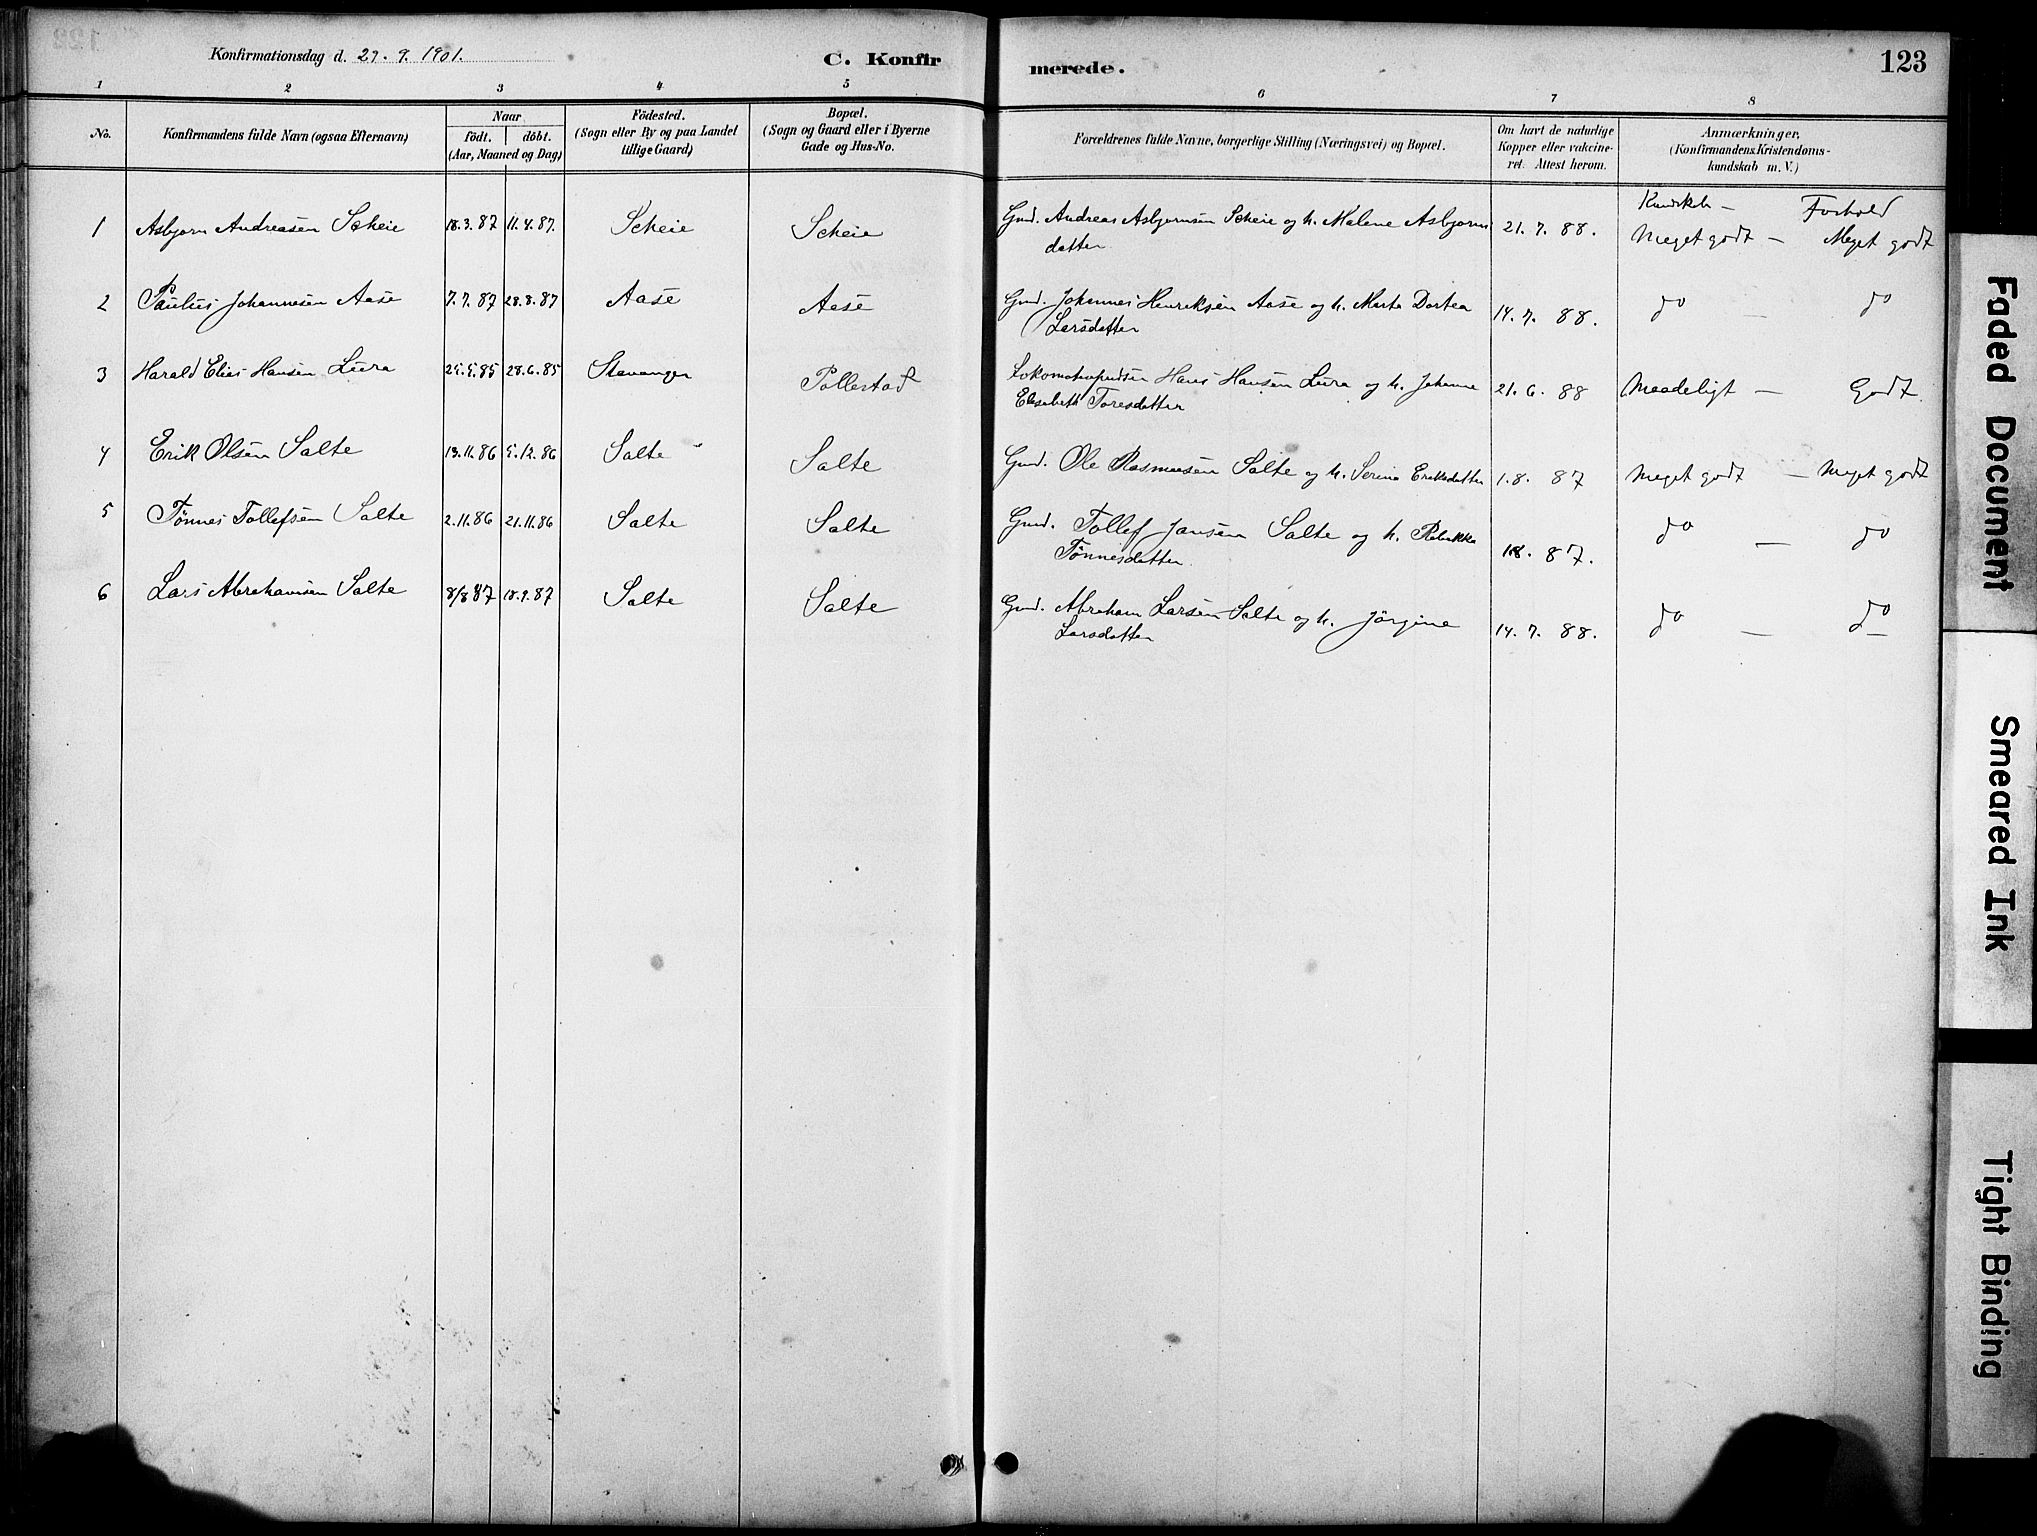 Konfirmationsdag d. 29. 9. 1901.
C. Konfirmerede.
123
1 2 3 4 5 6 7 8
No.
Konfirmandens fulde Navn (ogsaa Efternavn)
Naar
födt. döbt.
(Aar, Maaned og Dag)
Födested.
(Sogn eller By og paa Landet
tillige Gaard)
Bopæl.
(Sogn og Gaard eller i Byerne
Gade og Hus-No.
Forældrenes fulde Navne, borgerlige Stilling (Næringsvei) og Bopæl.
Om havt de naturlige
Kopper eller vakcine-
ret. Attest herom.
Anmærkninger,
(Konfirmandens Kristendoms-
kundskab m. V.)
Kundskb — Forhold
1 Asbjørn Andreasen Scheie 18.3.87 11.4.87. Scheie Scheie Gmd. Andreas Asbjørnsen Scheie og h. Malene Asbjørns 21. 7. 88. Meget godt — Meget godt
datter
2 Paulus Johannesen Aase 7.7.87 28.8.87 Aase Aase Gmd. Johannes Henriksen Aase og h. Marta Dortea 14. 7. 88. do — do
Larsdatter
3 Harald Elias Hansen Lura 25.5.85 28.6.85 Stavanger Pollestad Lokomotivpudser Hans Hansen Lura og h. Johanne 21. 6. 88 Maadeligt — Godt.
Elisabeth Toresdatter
4 Erik Olsen Salte 13.11.86 5.12.86 Salte Salte Gmd. Ole Rasmussen Salte og h. Serina Eriksdatter 1.8. 87 Meget godt — Meget godt
5 Tönnes Tollefsen Salte 2.11.86 21.11.86 Salte Salte Gmd. Tollef Jansen Salte og h. Rebekka 1.8. 87. do — do
Tönnesdatter.
6 Lars Abrahamsen Salte 8/8 87 18.9.87 Salte Salte Gmd. Abraham Larsen Salte og h. Jörgine 14. 7. 88. do — do
Larsdatter
Faded Document
Smeared Ink
Tight Binding